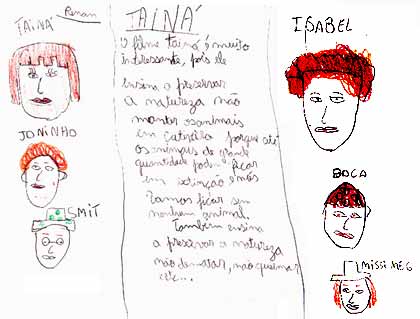 Renan
TAINÁ
JONINHO
SMIT
TAINÁ
O filme tainá é muito
interessante, pois ele
ensina a preservar
a natureza não
manter os animais
em cativeiro porque até
os animais de grande
quantidade podem ficar
em extinção e nós
vamos ficar sem
nenhum animal.
Também ensina
a preservar a natureza
não dematar, não queimar
etc...
ISABEL
BOCA
MISSI MEG